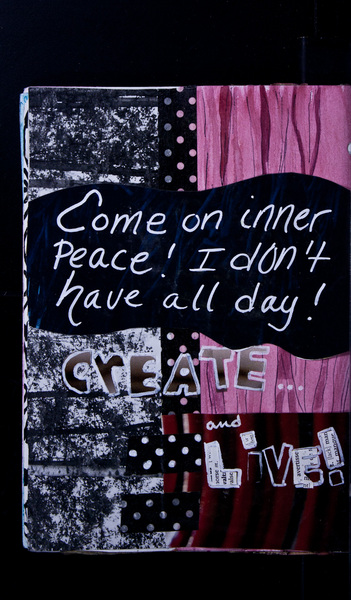 Come on inner
Peace! I don't
have all day!
CREATE...
and
LIVE!